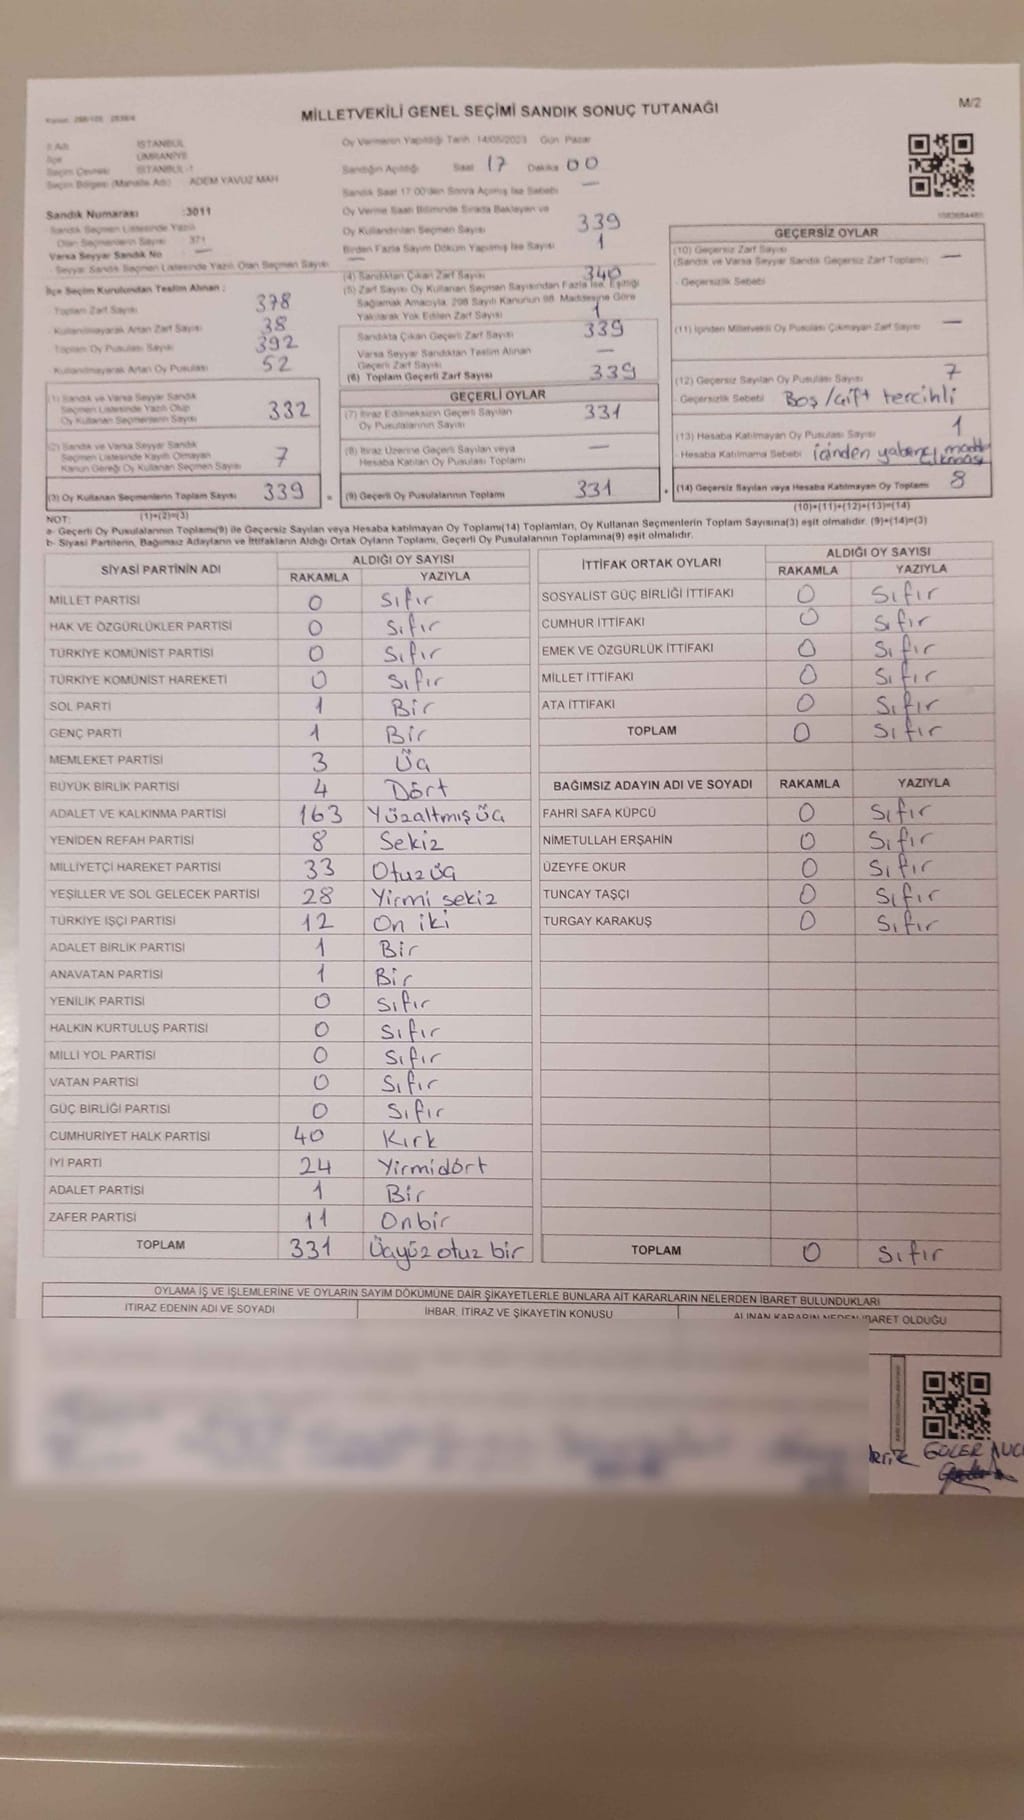 M/2
MİLLETVEKİLİ GENEL SEÇİMİ SANDIK SONUÇ TUTANAĞI
İl Adı İSTANBUL
İlçe ÜMRANİYE
Seçim Çevresi İSTANBUL-1
Seçim Bölgesi (Mahalle Adı) ADEM YAVUZ MAH
Sandık Numarası :3011
Sandık Seçmen Listesinde Yazılı
Olan Seçmenlerin Sayısı 371
Varsa Seyyar Sandık No —
Seyyar Sandık Seçmen Listesinde Yazılı Olan Seçmen Sayısı —
İlçe Seçim Kurulundan Teslim Alınan :
Toplam Zarf Sayısı 378
Kullanılmayarak Artan Zarf Sayısı 38
Toplam Oy Pusulası Sayısı 392
Kullanılmayarak Artan Oy Pusulası 52
(1) Sandık ve Varsa Seyyar Sandık
Seçmen Listesinde Yazılı Olup
Oy Kullanan Seçmenlerin Sayısı 332
(2) Sandık ve Varsa Seyyar Sandık
Seçmen Listesinde Kayıtlı Olmayan
Kanun Gereği Oy Kullanan Seçmen Sayısı 7
(3) Oy Kullanan Seçmenlerin Toplam Sayısı 339
(1)+(2)=(3)
Oy Vermenin Yapıldığı Tarih :14/05/2023 Gün Pazar
Sandığın Açıldığı Saat 17 Dakika 00
Sandık Saat 17.00'den Sonra Açılmış İse Sebebi —
Oy Verme Saati Bitiminde Sırada Bekleyen ve
Oy Kullandırılan Seçmen Sayısı 339
Birden Fazla Sayım Döküm Yapılmış İse Sayısı 1
(4) Sandıktan Çıkan Zarf Sayısı 340
(5) Zarf Sayısı Oy Kullanan Seçmen Sayısından Fazla İse, Eşitliği
Sağlamak Amacıyla, 298 Sayılı Kanunun 98. Maddesine Göre
Yakılarak Yok Edilen Zarf Sayısı 1
Sandıkta Çıkan Geçerli Zarf Sayısı 339
Varsa Seyyar Sandıktan Teslim Alınan
Geçerli Zarf Sayısı —
(6) Toplam Geçerli Zarf Sayısı 339
GEÇERLİ OYLAR
(7) İtiraz Edilmeksizin Geçerli Sayılan
Oy Pusulalarının Sayısı 331
(8) İtiraz Üzerine Geçerli Sayılan veya
Hesaba Katılan Oy Pusulası Toplamı —
= (9) Geçerli Oy Pusulalarının Toplamı 331
GEÇERSİZ OYLAR
(10) Geçersiz Zarf Sayısı —
(Sandık ve Varsa Seyyar Sandık Geçersiz Zarf Toplamı)
Geçersizlik Sebebi
(11) İçinden Milletvekili Oy Pusulası Çıkmayan Zarf Sayısı —
(12) Geçersiz Sayılan Oy Pusulası Sayısı 7
Geçersizlik Sebebi Boş/Çift tercihli
(13) Hesaba Katılmayan Oy Pusulası Sayısı 1
Hesaba Katılmama Sebebi içinden yabancı madde çıkması
+ (14) Geçersiz Sayılan veya Hesaba Katılmayan Oy Toplamı 8
(10)+(11)+(12)+(13)=(14)
NOT:
a- Geçerli Oy Pusulalarının Toplamı(9) ile Geçersiz Sayılan veya Hesaba katılmayan Oy Toplamı(14) Toplamları, Oy Kullanan Seçmenlerin Toplam Sayısına(3) eşit olmalıdır. (9)+(14)=(3)
b- Siyasi Partilerin, Bağımsız Adayların ve İttifakların Aldığı Ortak Oyların Toplamı, Geçerli Oy Pusulalarının Toplamına(9) eşit olmalıdır.
SİYASİ PARTİNİN ADI ALDIĞI OY SAYISI
RAKAMLA YAZIYLA
MİLLET PARTİSİ 0 Sıfır
HAK VE ÖZGÜRLÜKLER PARTİSİ 0 Sıfır
TÜRKİYE KOMÜNİST PARTİSİ 0 Sıfır
TÜRKİYE KOMÜNİST HAREKETİ 0 Sıfır
SOL PARTİ 1 Bir
GENÇ PARTİ 1 Bir
MEMLEKET PARTİSİ 3 Üç
BÜYÜK BİRLİK PARTİSİ 4 Dört
ADALET VE KALKINMA PARTİSİ 163 Yüzaltmışüç
YENİDEN REFAH PARTİSİ 8 Sekiz
MİLLİYETÇİ HAREKET PARTİSİ 33 Otuzüç
YEŞİLLER VE SOL GELECEK PARTİSİ 28 Yirmi sekiz
TÜRKİYE İŞÇİ PARTİSİ 12 On iki
ADALET BİRLİK PARTİSİ 1 Bir
ANAVATAN PARTİSİ 1 Bir
YENİLİK PARTİSİ 0 Sıfır
HALKIN KURTULUŞ PARTİSİ 0 Sıfır
MİLLİ YOL PARTİSİ 0 Sıfır
VATAN PARTİSİ 0 Sıfır
GÜÇ BİRLİĞİ PARTİSİ 0 Sıfır
CUMHURİYET HALK PARTİSİ 40 Kırk
İYİ PARTİ 24 Yirmidört
ADALET PARTİSİ 1 Bir
ZAFER PARTİSİ 11 Onbir
TOPLAM 331 Üçyüz otuz bir
İTTİFAK ORTAK OYLARI ALDIĞI OY SAYISI
RAKAMLA YAZIYLA
SOSYALİST GÜÇ BİRLİĞİ İTTİFAKI 0 Sıfır
CUMHUR İTTİFAKI 0 Sıfır
EMEK VE ÖZGÜRLÜK İTTİFAKI 0 Sıfır
MİLLET İTTİFAKI 0 Sıfır
ATA İTTİFAKI 0 Sıfır
TOPLAM 0 Sıfır
BAĞIMSIZ ADAYIN ADI VE SOYADI RAKAMLA YAZIYLA
FAHRİ SAFA KÜPCÜ 0 Sıfır
NİMETULLAH ERŞAHİN 0 Sıfır
ÜZEYFE OKUR 0 Sıfır
TUNCAY TAŞÇI 0 Sıfır
TURGAY KARAKUŞ 0 Sıfır
TOPLAM 0 Sıfır
OYLAMA İŞ VE İŞLEMLERİNE VE OYLARIN SAYIM DÖKÜMÜNE DAİR ŞİKAYETLERLE BUNLARA AİT KARARLARIN NELERDEN İBARET BULUNDUKLARI
İTİRAZ EDENİN ADI VE SOYADI İHBAR, İTİRAZ VE ŞİKAYETİN KONUSU ALINAN KARARIN NEDEN İBARET OLDUĞU
GÜLER